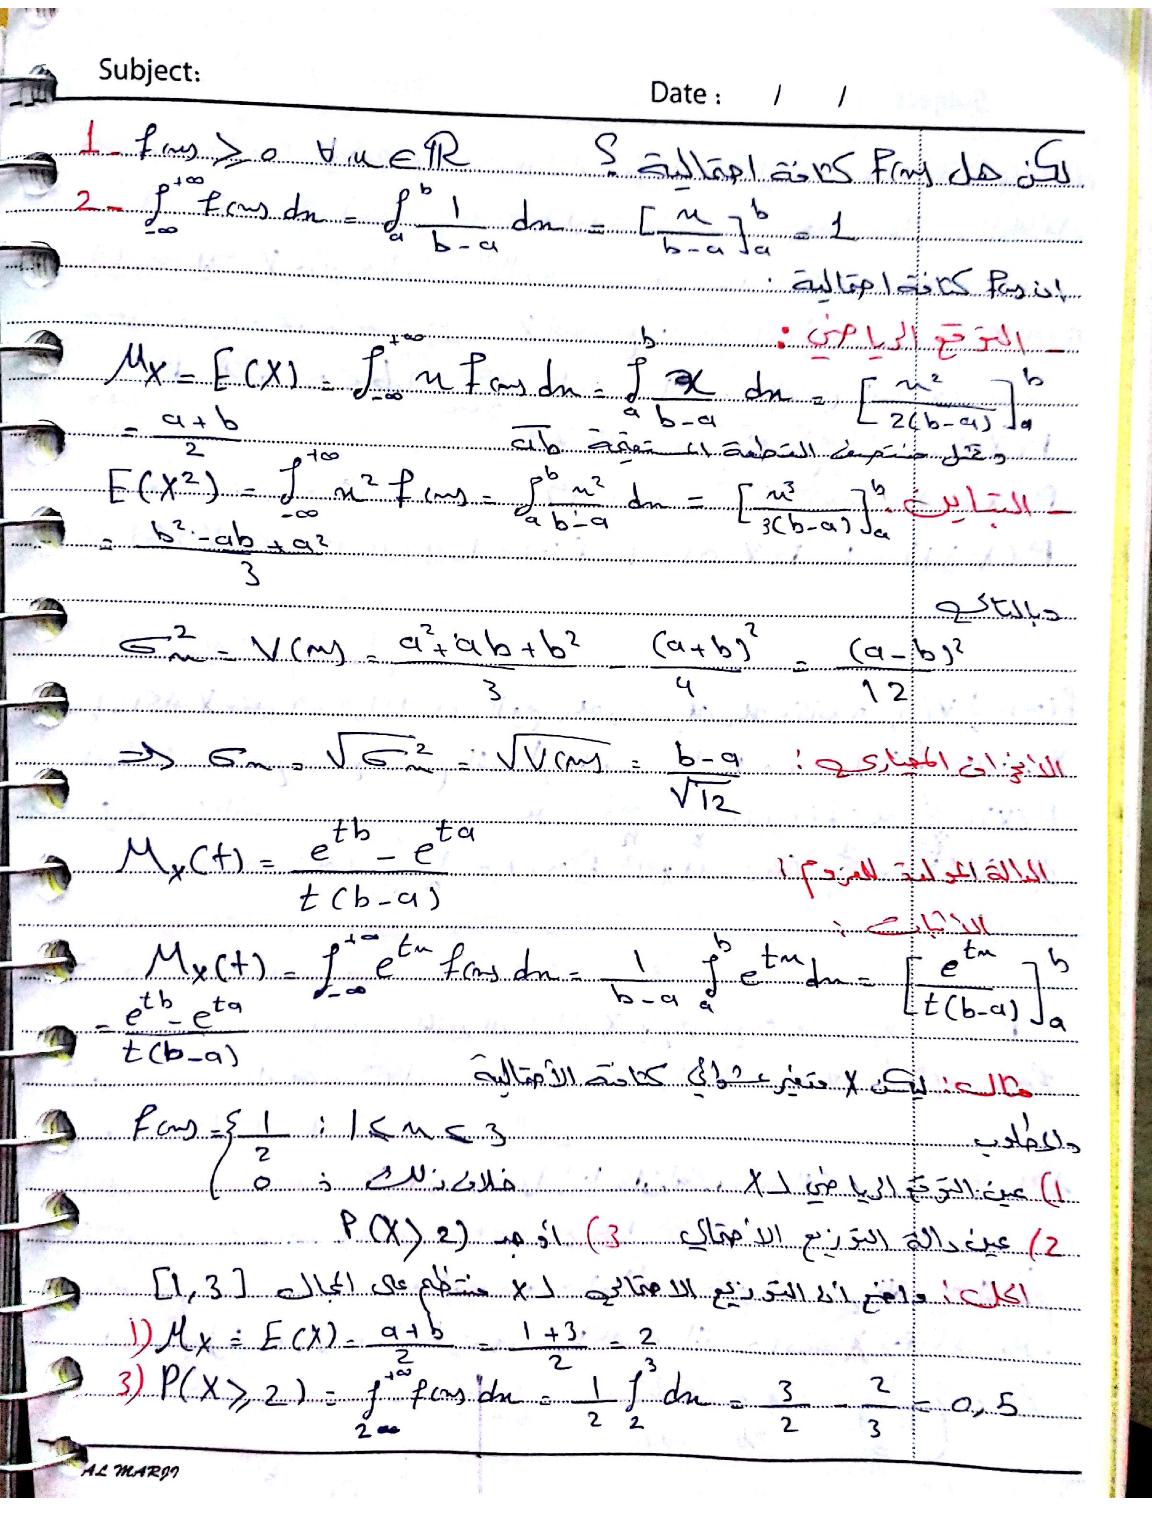 Subject:
Date : / /
لكن هل f(x) كثافة احتمالية ؟
1- f(x) ≥ 0 ∀ x ∈ ℝ
2- ∫_{-∞}^{+∞} f(x) dx = ∫_a^b 1/(b-a) dx = [x/(b-a)]_a^b = 1
إذن f(x) كثافة احتمالية .
- التوقع الرياضي :
M_X = E(X) = ∫_{-∞}^{+∞} x f(x) dx = ∫_a^b x/(b-a) dx = [x²/2(b-a)]_a^b
= (a+b)/2 وتمثل منتصف القطعة المستقيمة ab
- التباين :
E(X²) = ∫_{-∞}^{+∞} x² f(x) = ∫_a^b x²/(b-a) dx = [x³/3(b-a)]_a^b
= (b²-ab+a²)/3
وبالتالي
σ²_x = V(x) = (a²+ab+b²)/3 - (a+b)²/4 = (a-b)²/12
الانحراف المعياري :
⇒ σ_x = √σ²_x = √V(x) = (b-a)/√12
الدالة المولدة للعزوم :
M_X(t) = (e^{tb} - e^{ta})/t(b-a)
الاثبات :
M_X(t) = ∫_{-∞}^{+∞} e^{tx} f(x) dx = 1/(b-a) ∫_a^b e^{tx} dx = [e^{tx}/t(b-a)]_a^b
= (e^{tb} - e^{ta})/t(b-a)
مثال : ليكن X متغير عشوائي كثافة الأحتمالية
f(x) = { 1/2 : 1 < x < 3
0 : خلاف ذلك
والمطلوب
1) عين التوقع الرياضي لـ X
2) عين دالة التوزيع الاحتمالي 3) أوجد P(X > 2)
الحل : واضح أن التوزيع الاحتمالي لـ X منتظم على المجال [1,3]
1) M_X = E(X) = (a+b)/2 = (1+3)/2 = 2
3) P(X ≥ 2) = ∫_2^{+∞} f(x) dx = 1/2 ∫_2^3 dx = 3/2 - 2/3 = 0,5
AL MARJI